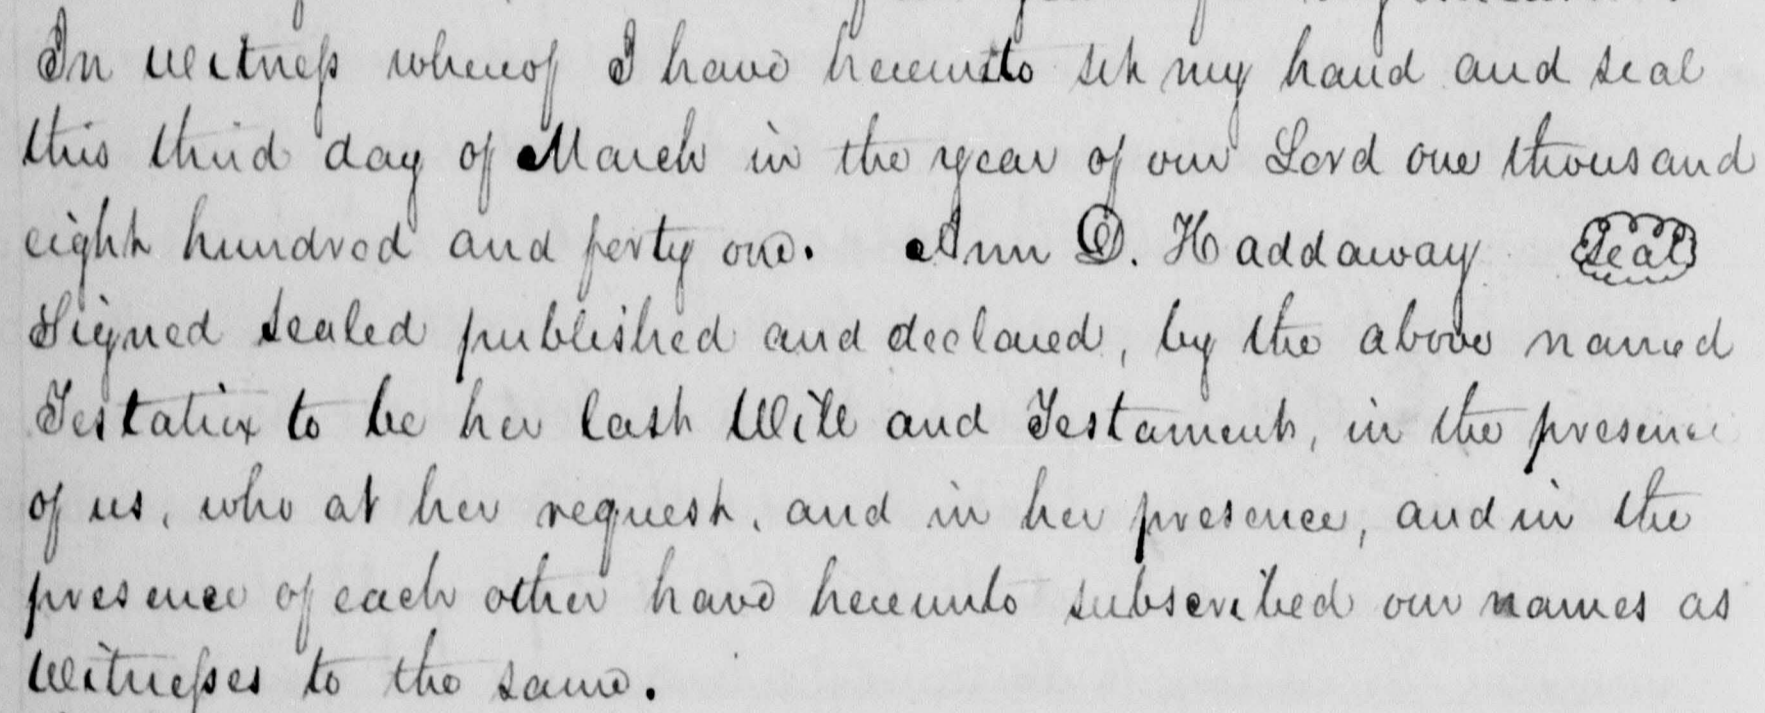 In witness whereof I have hereunto set my hand and seal
this third day of March in the year of our Lord one thousand
eight hundred and forty one. Ann D. Haddaway Seal
Signed sealed published and declared, by the above named
Testatrix to be her last Will and Testament, in the presence
of us, who at her request, and in her presence, and in the
presence of each other have hereunto subscribed our names as
witnesses to the same.